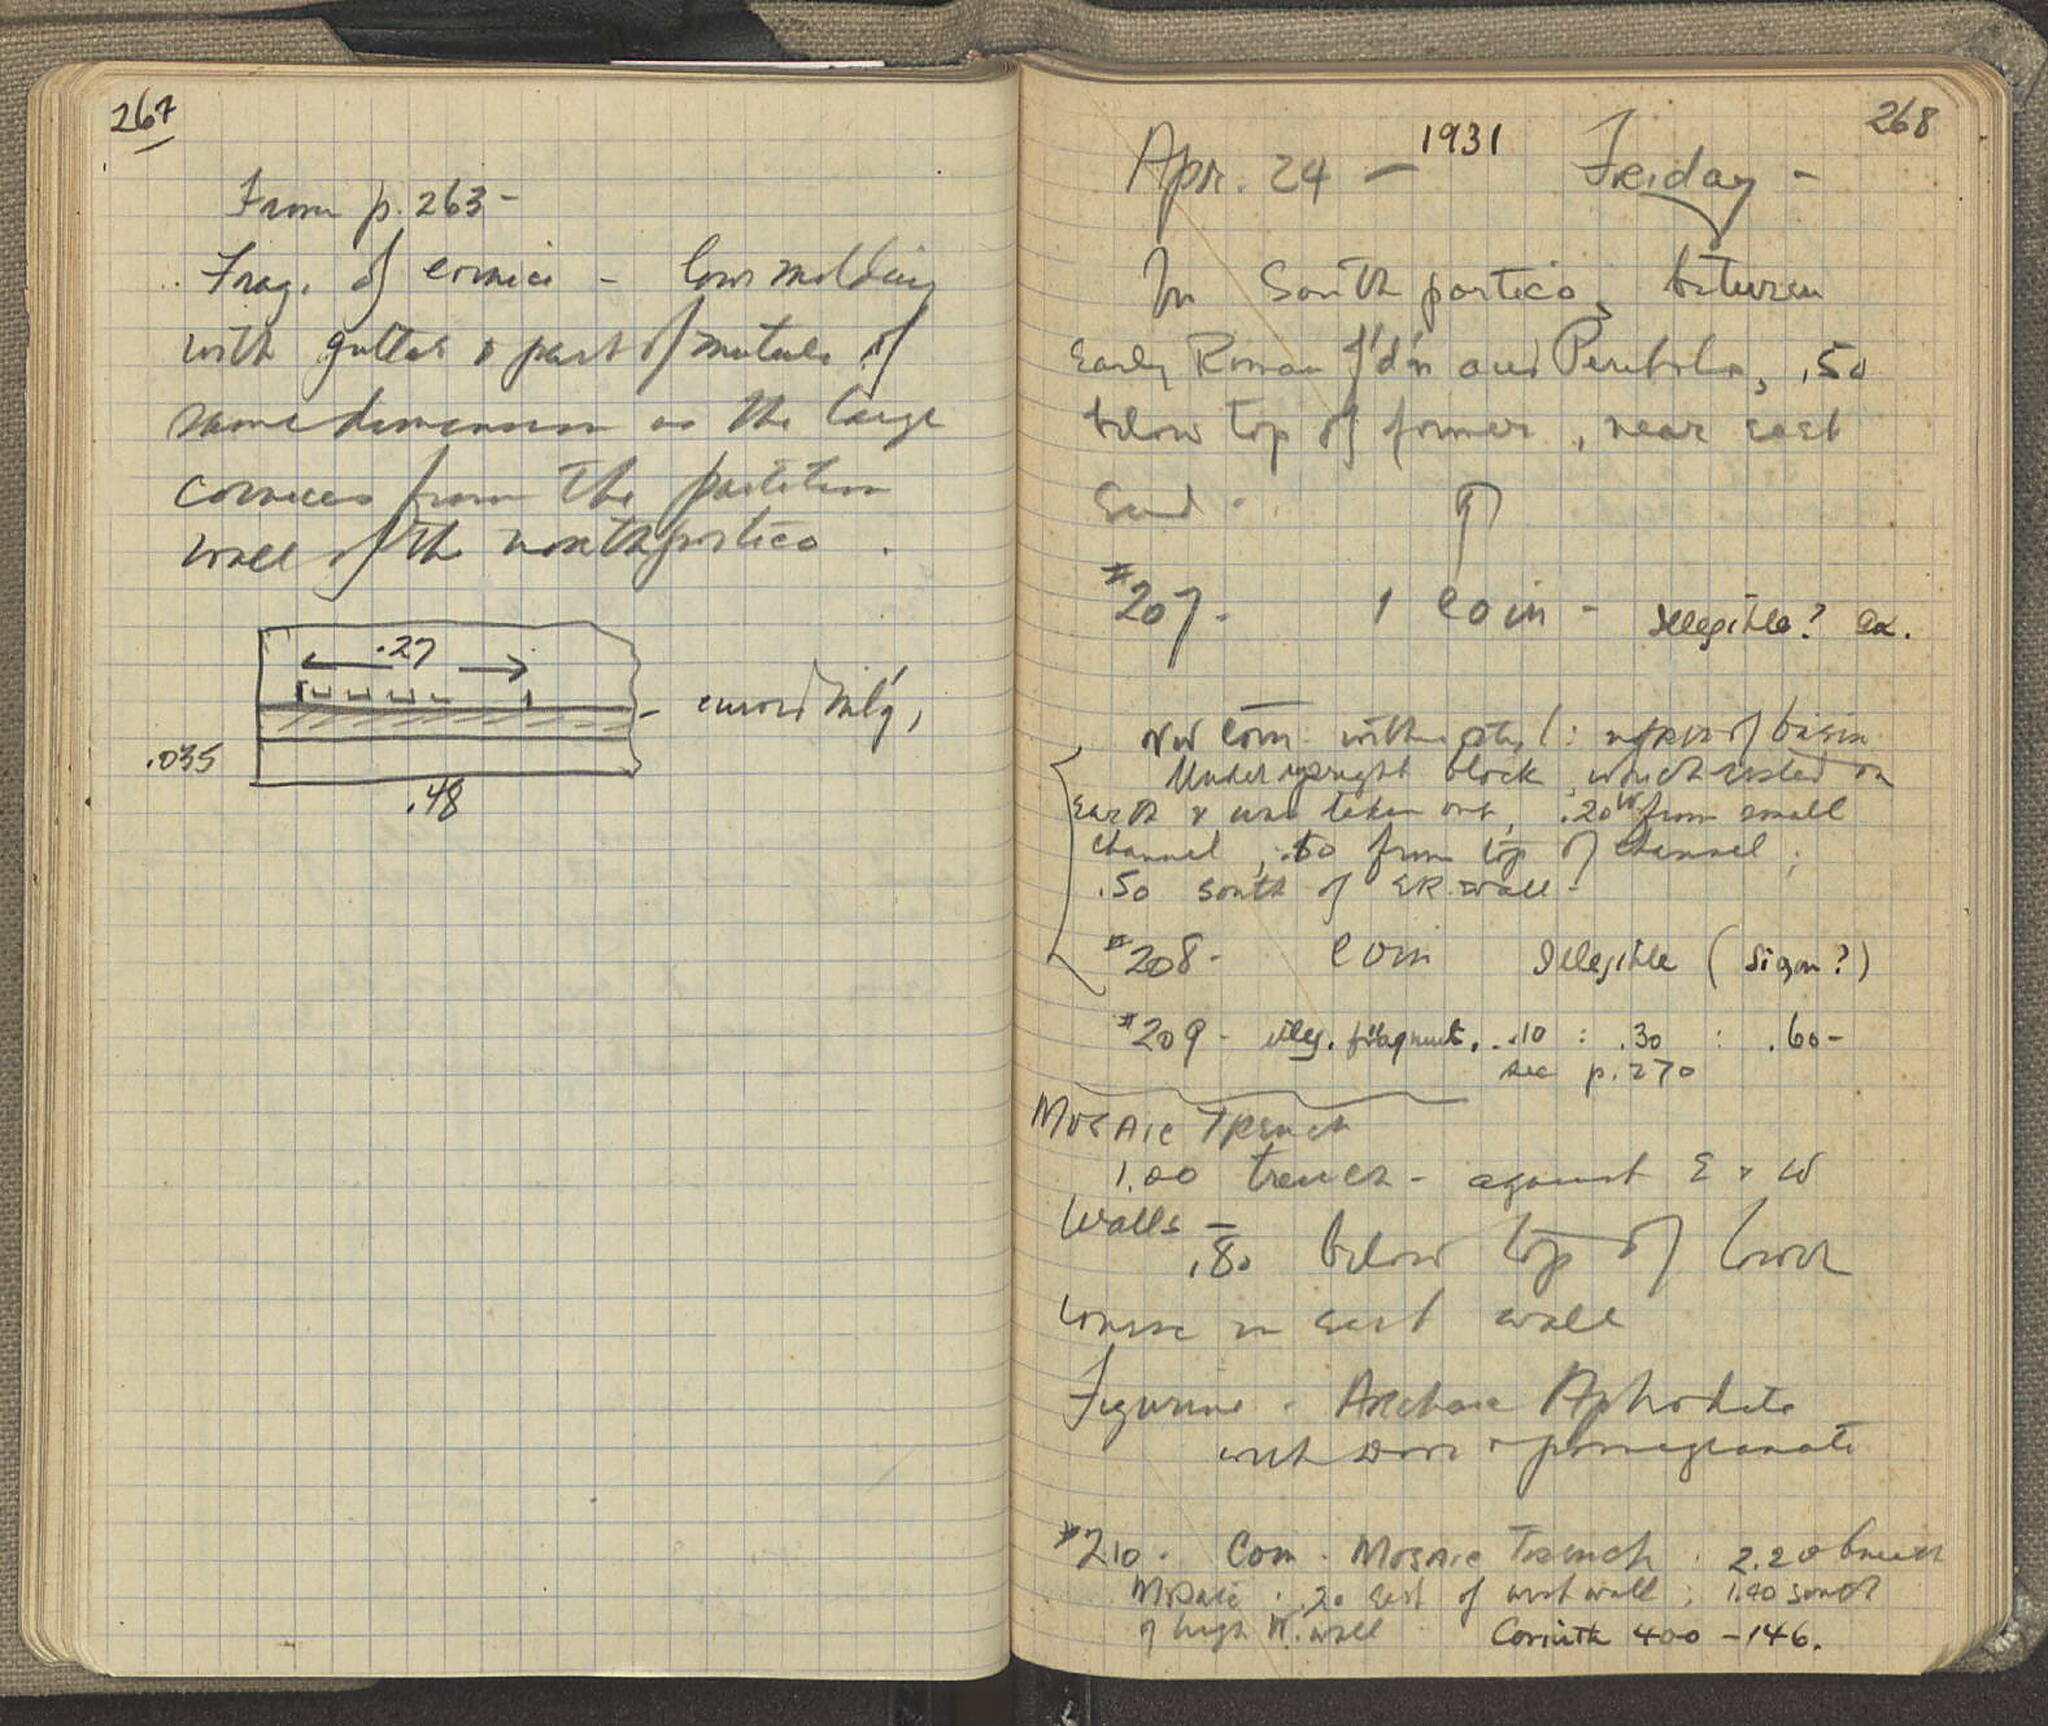 267
From p. 263 -
Frag. of cornice - low molding
with guttae & part of mutule of
same dimension as the large
cornices from the partition
wall of the north portico.
.27
curved ml'g,
.035
.48
268
Apr. 24 - 1931 Friday -
In South portico, between
Early Roman f'd'n and Peribolos, .50
below top of former, near east
end.
#207. 1 coin - Illegible? Æ.
NW corn. : of basin
Under upright block which rested on
earth & was taken out, .20 W. from small
channel, from top of channel;
.50 south of E.R. wall -
#208 - coin Illegible (Sigm?)
#209 - illeg. fragment. .10 : .30 : .60 -
see p. 270
Mosaic Trench
1.00 trench - against E & W
Walls -
.80 below top of lower
course in east wall
Figurine - Archaic Aphrodite
with dove & pomegranate
#210. Coin. Mosaic Trench. 2.20 beneath
Mosaic; .20 East of west wall; 1.40 south
of high N. wall Corinth 400 - 146.